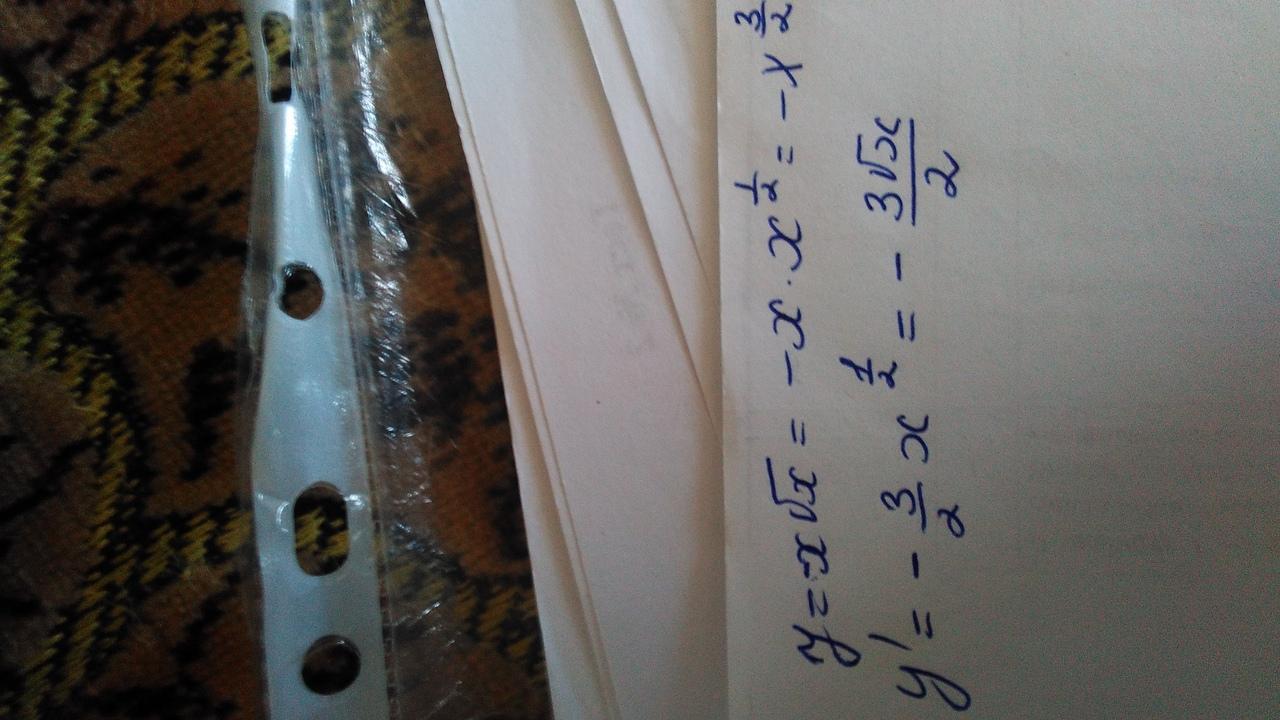 y = -x√x = -x · x^(1/2) = -x^(3/2)
y' = -3/2 x^(1/2) = - 3√x/2